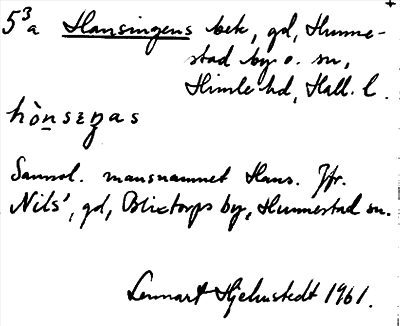 5³a Hansingens bek, gd, Hunne-
stad by o. sn,
Himle hd, Hall. l.
hò̱nsɛŋas
Sannol. mansnamnet Hans. Jfr.
Nils', gd, Blixtorps by, Hunnestad sn.
Lennart Hjelmstedt 1961.